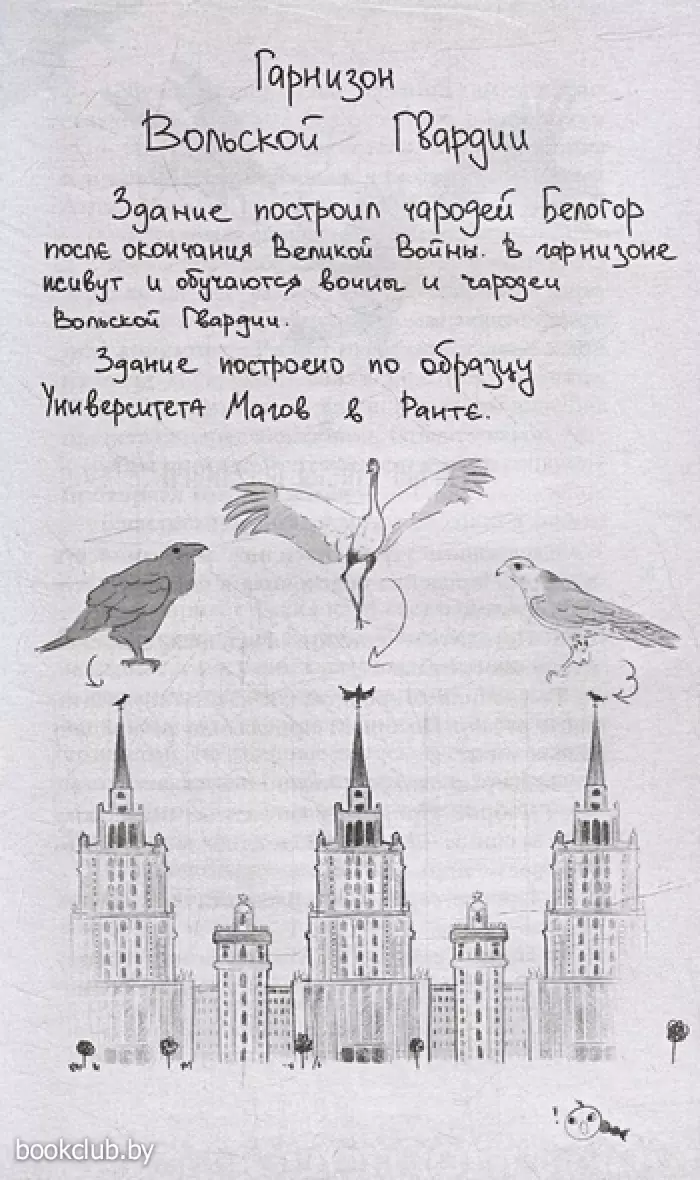 Гарнизон
Вольской Гвардии
Здание построил чародей Белогор
после окончания Великой Войны. В гарнизоне
живут и обучаются воины и чародеи
Вольской Гвардии.
Здание построено по образцу
Университета Магов в Ранте.
!
bookclub.by